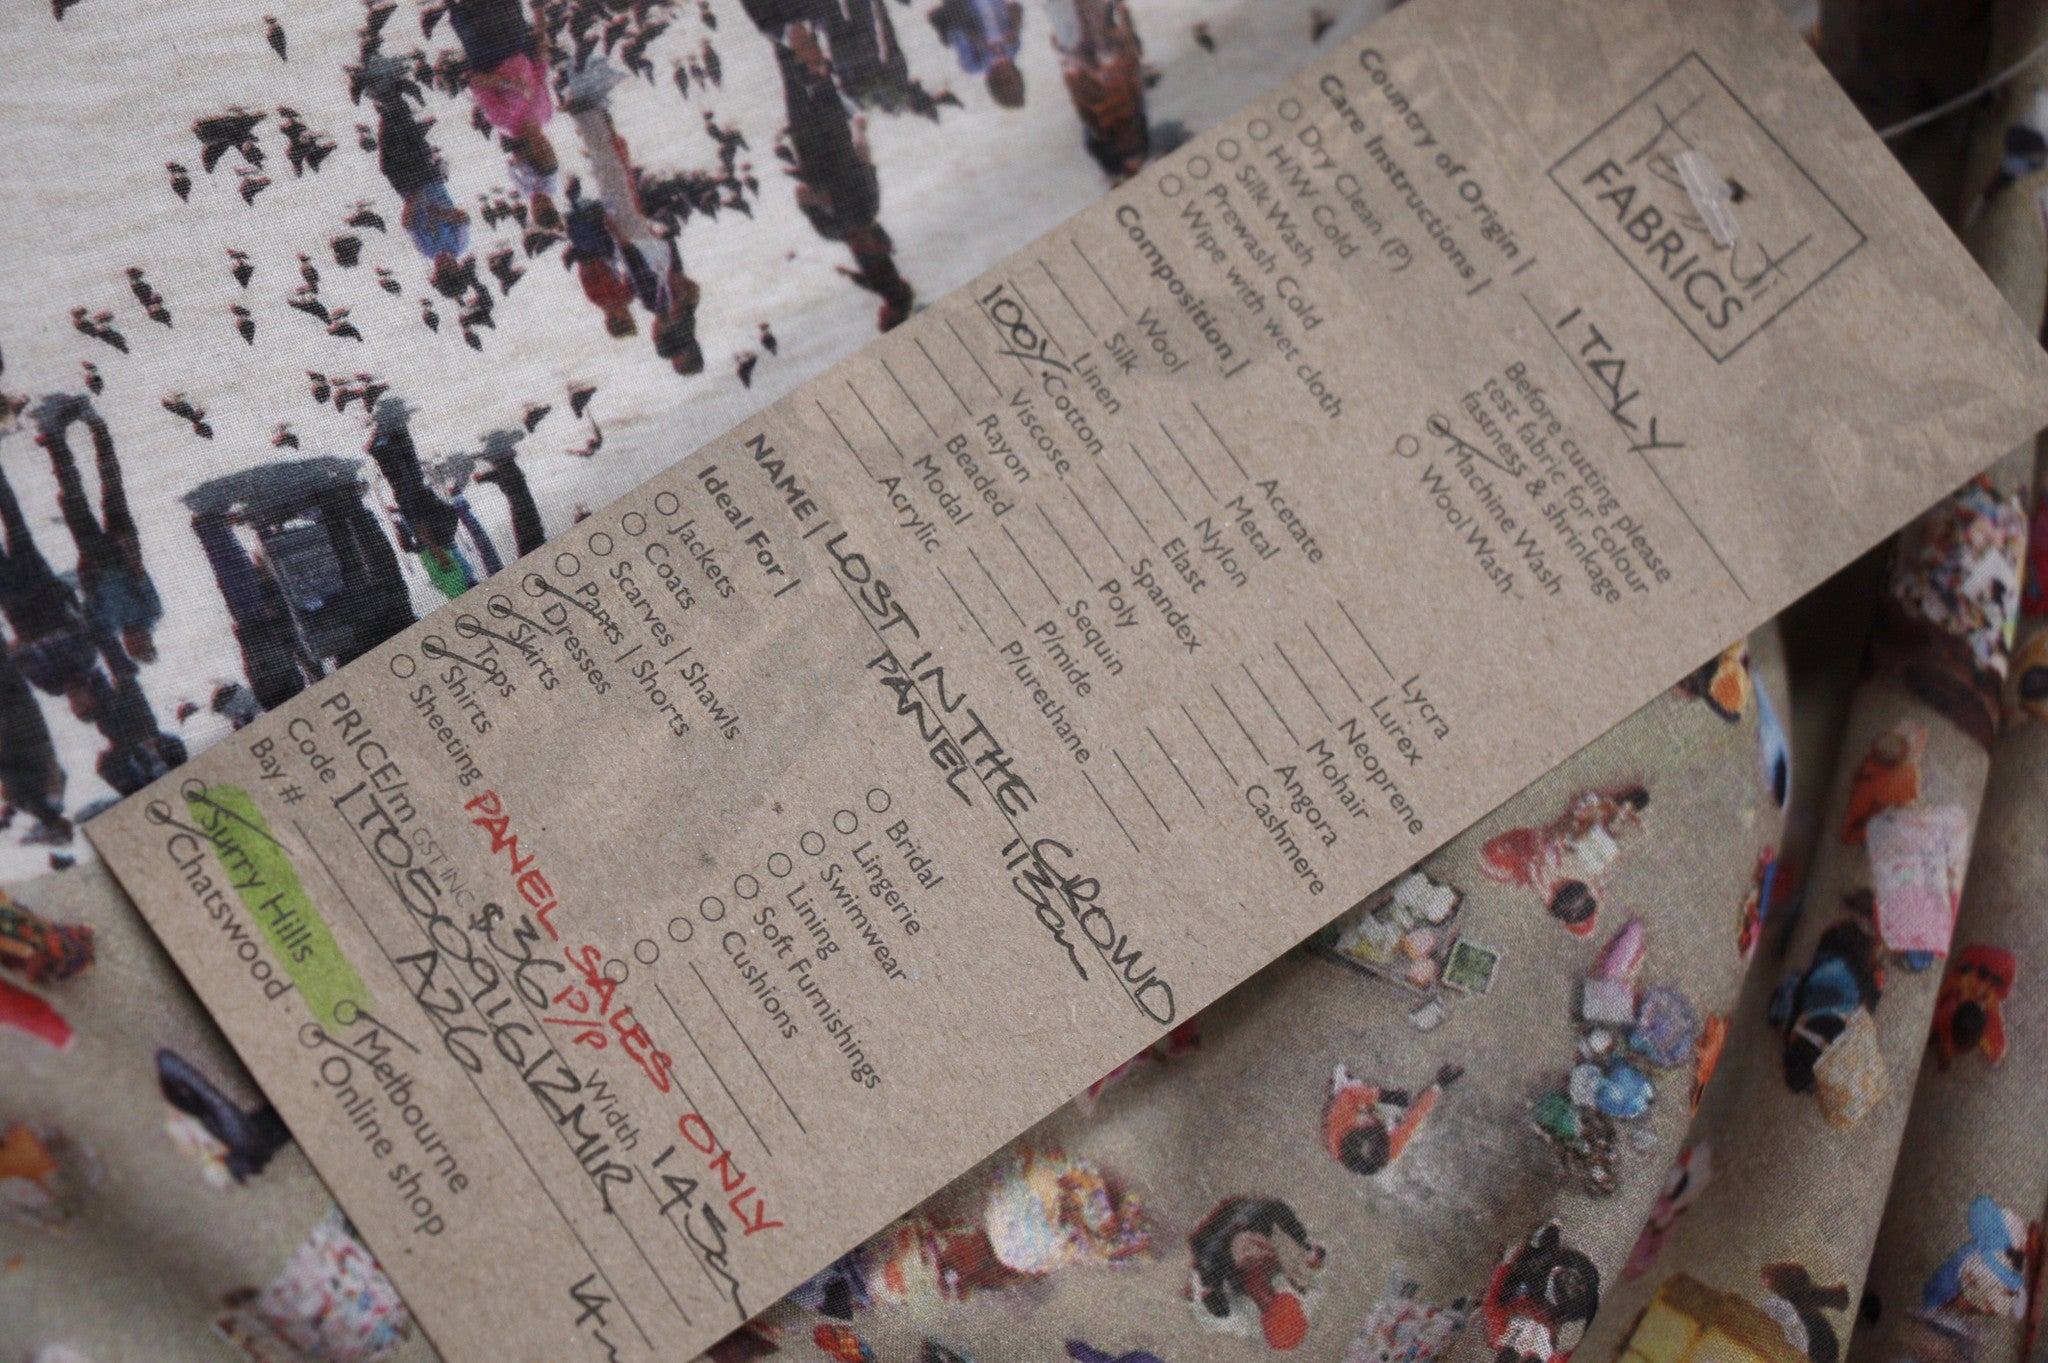 Tessuti
FABRICS
Country of Origin | ITALY
Care Instructions |
Dry Clean (P)
H/W Cold
Silk Wash
Prewash Cold
Wipe with wet cloth
Before cutting please
test fabric for colour
fastness & shrinkage
Machine Wash
Wool Wash
Composition |
Wool
Silk
Linen
100% Cotton
Viscose
Rayon
Beaded
Modal
Acrylic
Acetate
Metal
Nylon
Elast
Spandex
Poly
Sequin
P/mide
P/urethane
Lycra
Lurex
Neoprene
Mohair
Angora
Cashmere
NAME | LOST IN THE CROWD
PANEL 113cm
Ideal For |
Jackets
Coats
Scarves | Shawls
Pants | Shorts
Dresses
Skirts
Tops
Shirts
Sheeting
Bridal
Lingerie
Swimwear
Lining
Soft Furnishings
Cushions
PANEL SALES ONLY
PRICE/m GST INC $36 P/P Width 145cm
Code ITO5091612MIR
Bay # A26
Surry Hills
Chatswood
Melbourne
Online shop